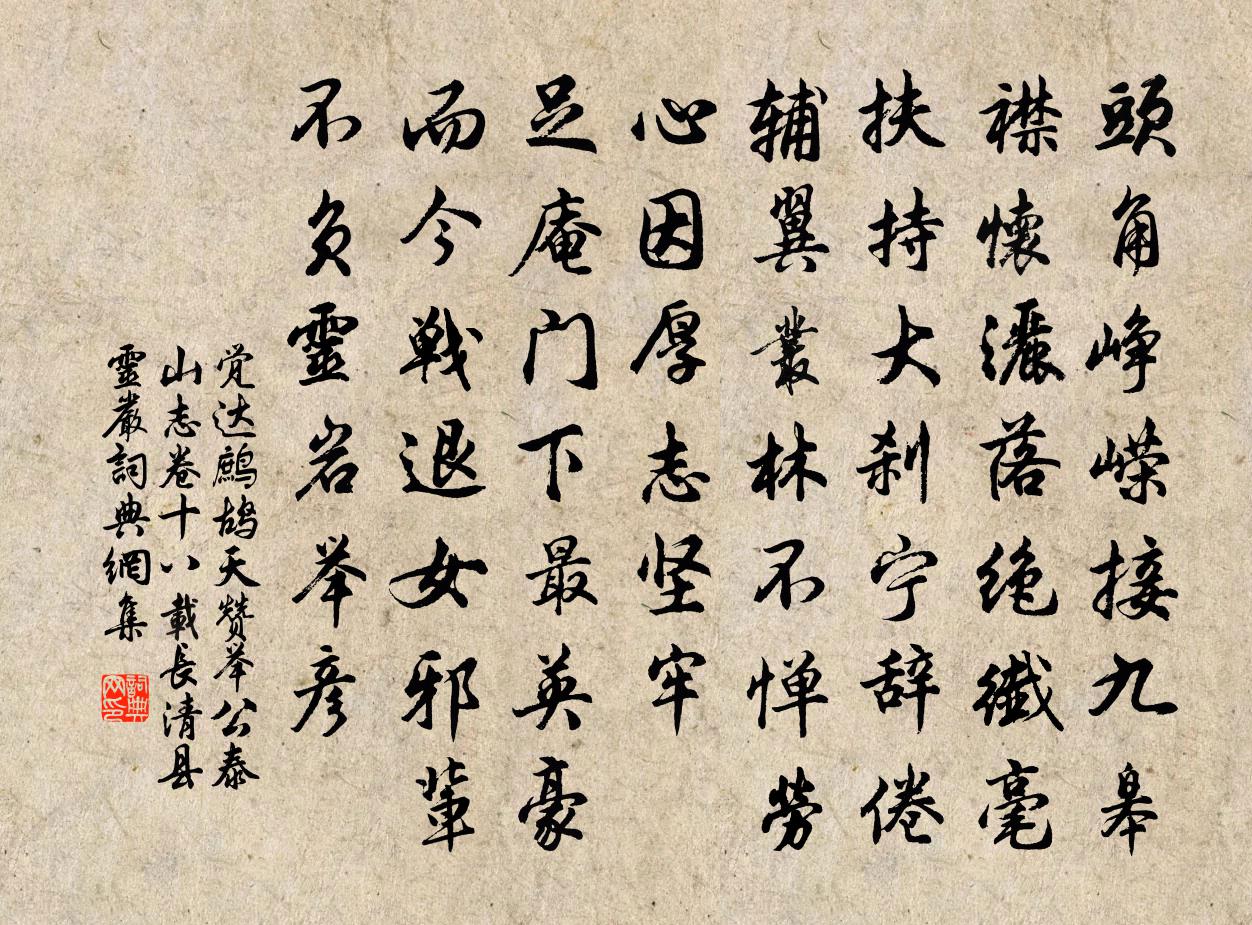 頭角峥嵘接九皋
襟懷灑落绝纖毫
扶持大刹宁辞倦
辅翼叢林不惮劳
心因厚志坚牢
足庵门下最英豪
而今戦退女邪輩
不负靈岩举彦
覚达鷓鸪天赞举公泰
山志卷十八載長清县
靈嚴詞典網集
詞典网印